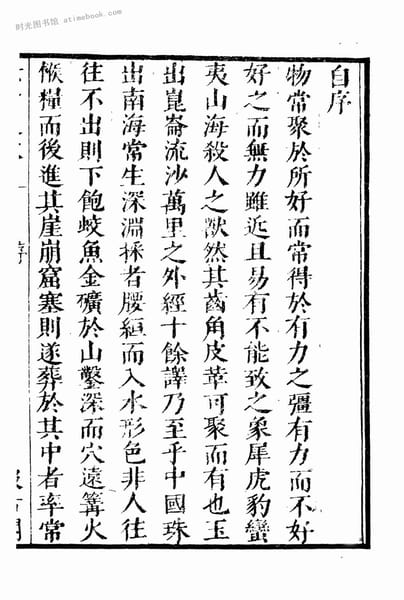 时光图书馆 · atimebook.com
自序
物常聚於所好而常得於有力之彊有力而不好
好之而無力雖近且易有不能致之象犀虎豹蠻
夷山海殺人之獸然其齒角皮革可聚而有也玉
出崑崙流沙萬里之外經十餘譯乃至乎中國珠
出南海常生深淵採者腰縆而入水形色非人往
往不出則下飽蛟魚金礦於山鑿深而穴遠篝火
餱糧而後進其崖崩窟塞則遂葬於其中者率常